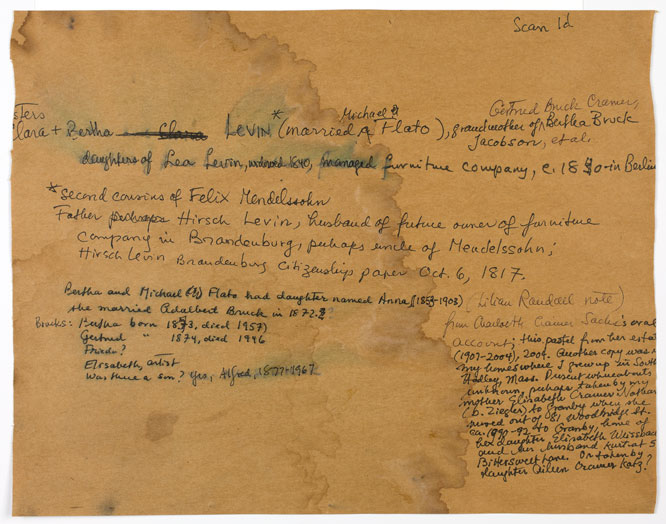 Scan 1d
sters
Clara + Bertha Clara LEVIN * (married Michael Flato), grandmother of Gertrud Bruck Cramer, Bertha Bruck Jacobson, et al.
daughters of Lea Levin, widowed 1840, managed furniture company, c. in Berlin
* second cousins of Felix Mendelssohn
Father perhaps Hirsch Levin, husband of future owner of furniture
company in Brandenburg, perhaps uncle of Mendelssohn;
Hirsch Levin Brandenburg citizenship paper Oct. 6, 1817.
Bertha and Michael Flato had daughter named Anna
she married Adalbert Bruck in 1872.
Brucks: Bertha born died 1957)
Gertrud " 1874, died 1946
Frieda?
Elisabeth, artist
Was there a son? Yes, Alfred, 1877-1967
(Lilian Randall note)
from Charlotte Cramer Sachs's oral
account; this pastel from her estate
(1907-2004), 2004. Another copy was
my homes where I grew up in South
Hadley, Mass. Present whereabouts
unknown, perhaps taken by my
mother Elisabeth Cramer
(b. Ziegler) to Granby when she
moved out of 81 Woodbridge St.
ca. 1990-92 to Granby, home of
her daughter Elisabeth
and her husband Kurt at 5
Bittersweet Lane. Or taken by
daughter Aileen Cramer Katz?